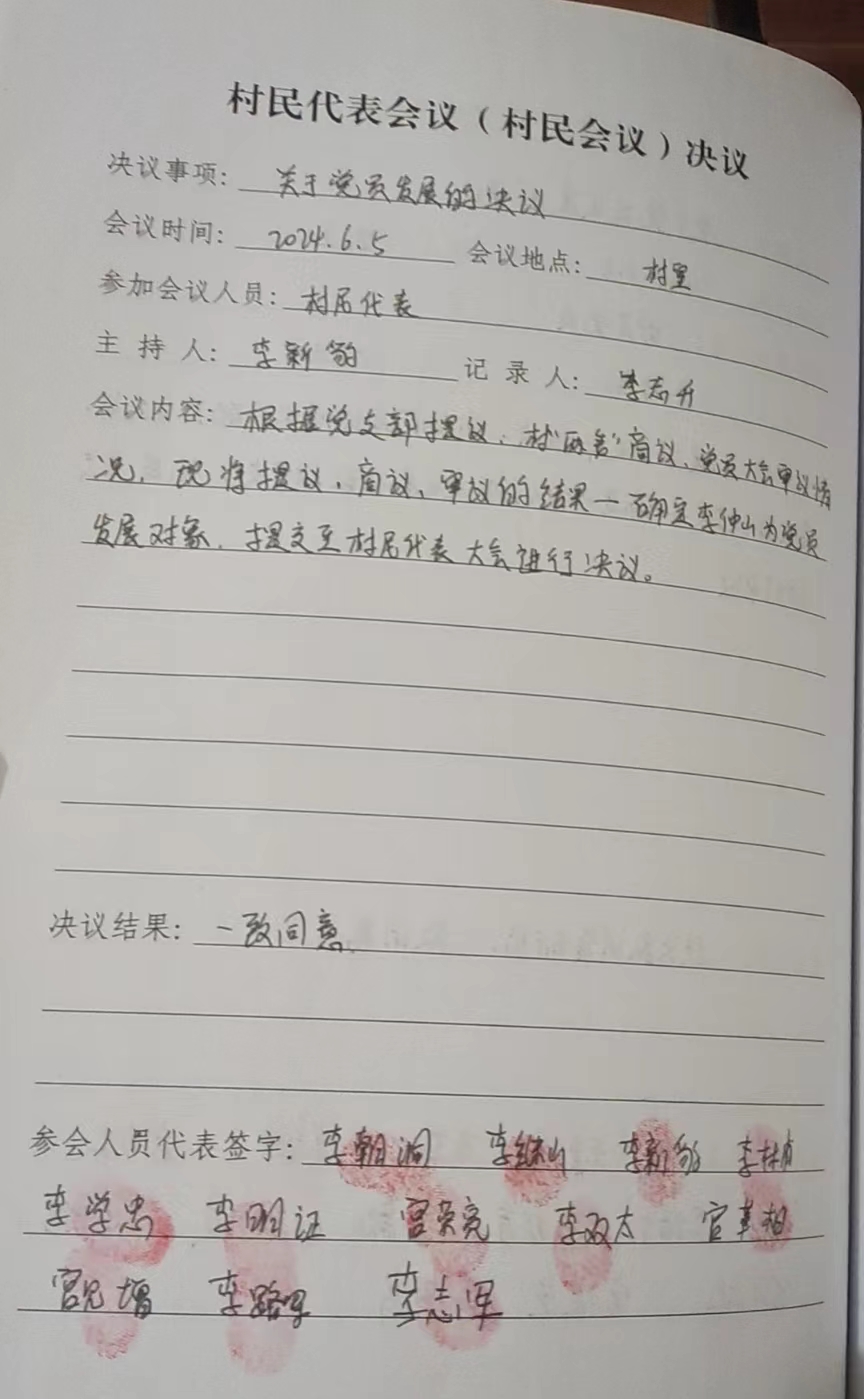 村民代表会议（村民会议）决议
决议事项：关于党员发展的决议
会议时间：2024.6.5 会议地点：村里
参加会议人员：村居代表
主持人：李新 记录人：李志升
会议内容：根据党支部提议、村"两委"商议、党员大会审议情
况，现将提议、商议、审议的结果一确定李仲山为党员
发展对象，提交至村居代表大会进行决议。
决议结果：一致同意.
参会人员代表签字：李朝 李继山 李新 李
李学忠 李明证 宫荣亮 李双太 宫
宫 增 李路 李志军